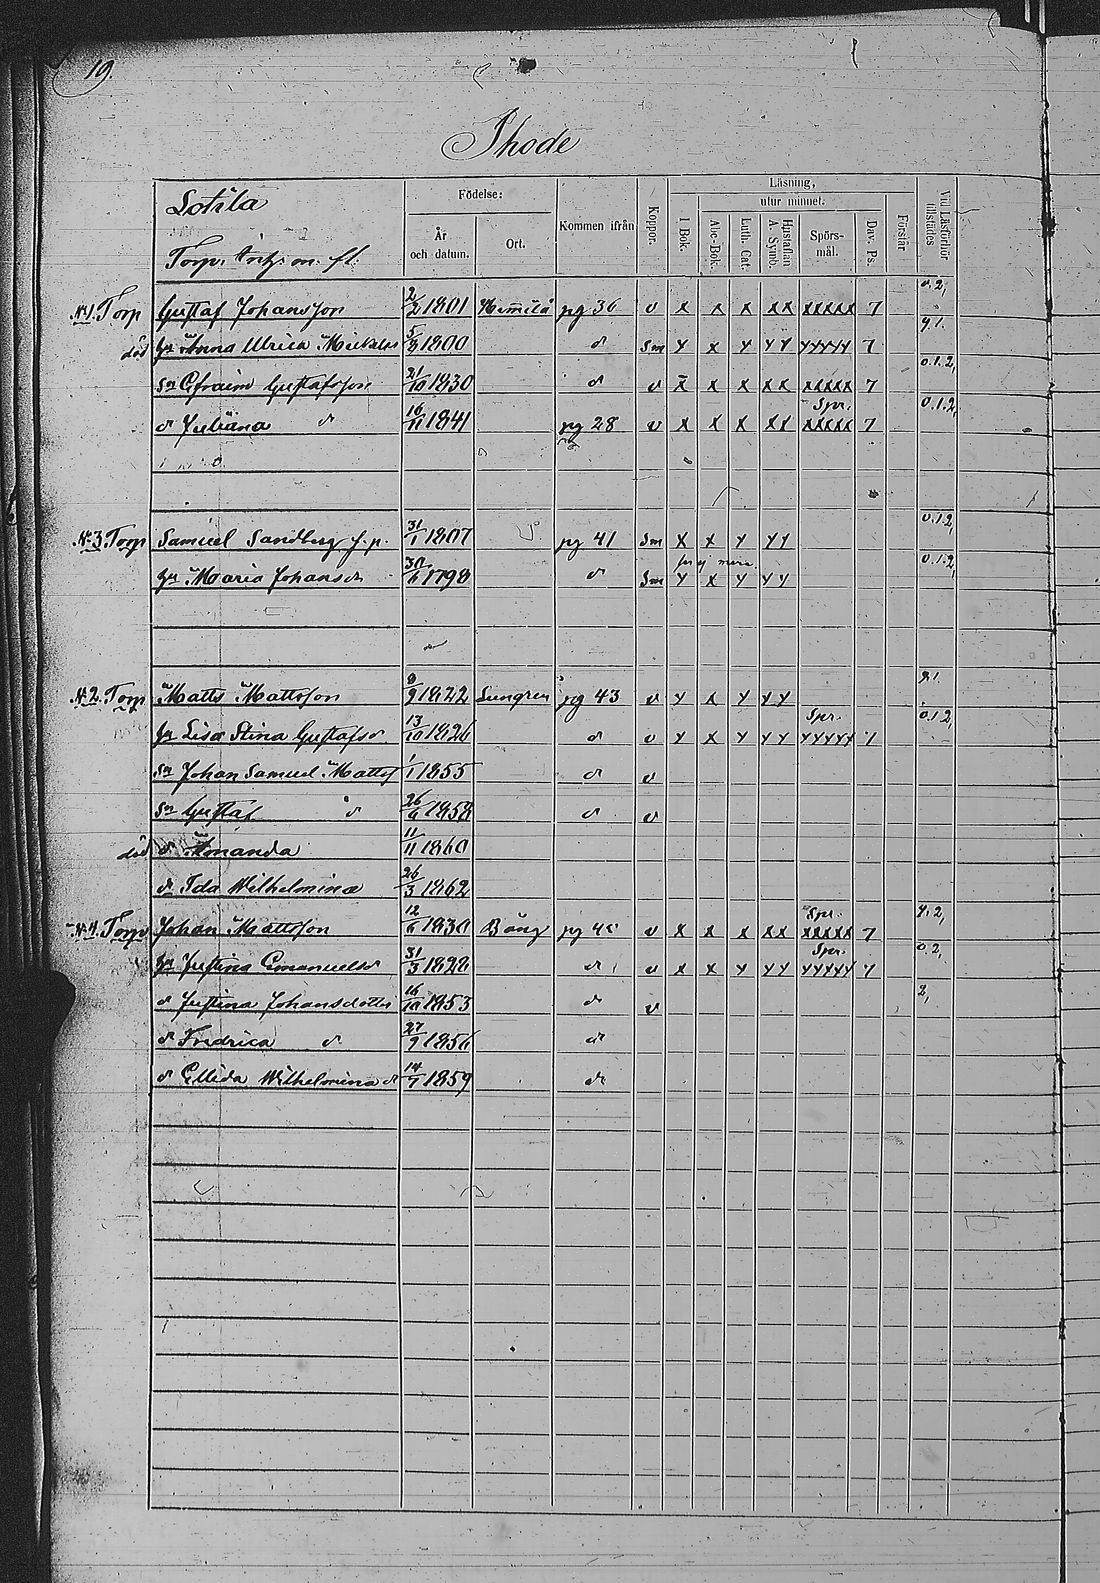 19.
Ihode
Lotila
Torp. m. fl.
Födelse:
År och datum.
Ort.
Kommen ifrån
Koppor.
Läsning,
utur minnet.
I Bok.
Abc-Bok.
Luth. Cat.
Hustaflan A. Symb.
Spörsmål.
Dav. Ps.
Förstår
Vid Läsförhör tillstädes
N:1. Torp Gustaf Johansson 2/2 1801 Himmilä pg 36 v x x x xx xxxxx 7 0.2,
död hu Anna Ulrica Michels 5/3 1800 d:o Sm y x y yy yyyyy 7 y1.
sn Efraim Gustafsson 21/10 1830 d:o v x x x xx xxxxx 7 0.1.2,
dr Juliana d:o 16/11 1841 pg 28 v x x x xx Spr. xxxxx 7 0.1.2,
N:3 Torp Samuel Sandberg f. p. 31/1 1807 pg 41 Sm x x y yy 0.1.2,
hu Maria Johansdr 30/6 1798 d:o Sm y x y yy 0.1.2,
N:2. Torp Matts Mattsson 9/9 1822 Lungren pg 43 v y x y yy
hu Lisa Stina Gustafsd. 13/10 1826 d:o v y x y yy Spr. yyyyy 7 0.1.2,
sn Johan Samuel Matts 1/1 1855 d:o v
sn Gustaf d:o 26/6 1858 d:o v
död dr Amanda 11/11 1860
dr Ida Wilhelmina 26/3 1862
N:4. Torp Johan Mattsson 12/6 1830 Bång v x x x xx Spr. xxxxx 7 y.2,
hu Justina Emanuelsdr 31/3 1828 d:o v x x y yy Spr. yyyyy 7 0.2,
dr Justina Johansdotter 16/10 1853 d:o v 2,
dr Fredrica d:o 27/9 1856 d:o
dr Ellida Wilhelmina d:o 14/7 1859 d:o